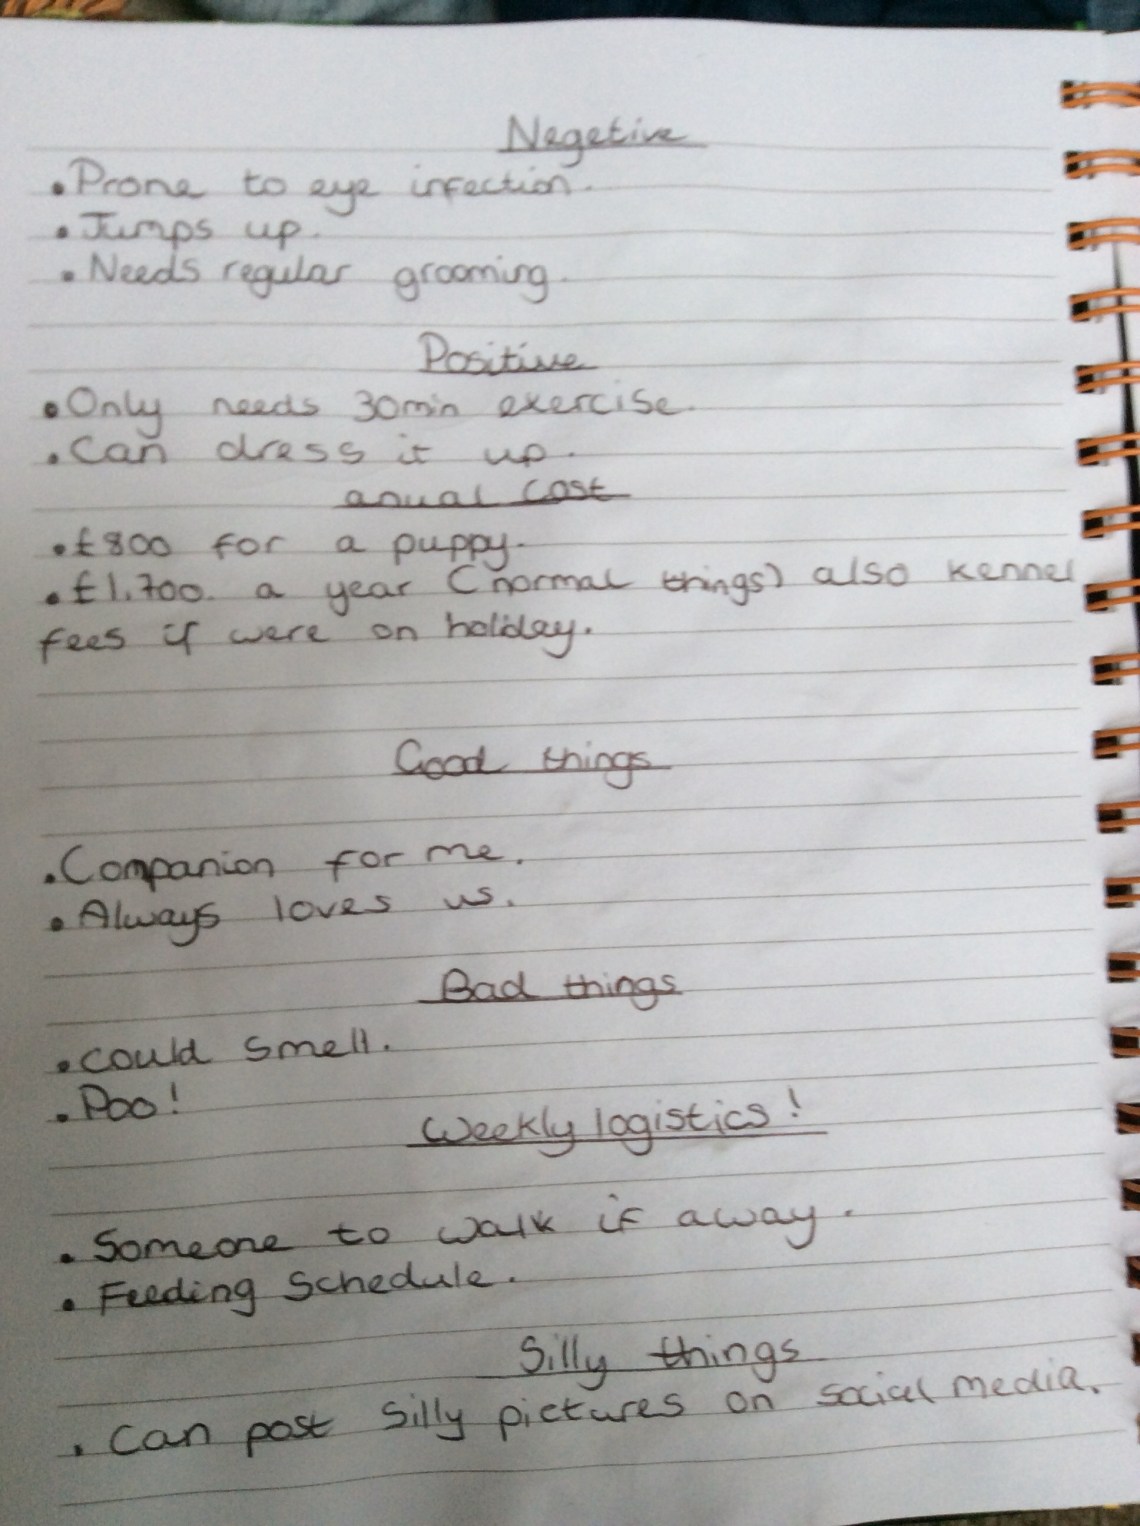 Negetive
• Prone to eye infection.
• Jumps up.
• Needs regular grooming.
Positive
• Only needs 30min exercise.
• Can dress it up.
anual cost
• £800 for a puppy.
• £1,700. a year (normal things) also kennel
fees if were on holiday.
Good things
• Companion for me.
• Always loves us.
Bad things
• could smell.
• Poo!
Weekly logistics!
• Someone to walk if away.
• Feeding Schedule.
Silly things
• Can post silly pictures on social media.